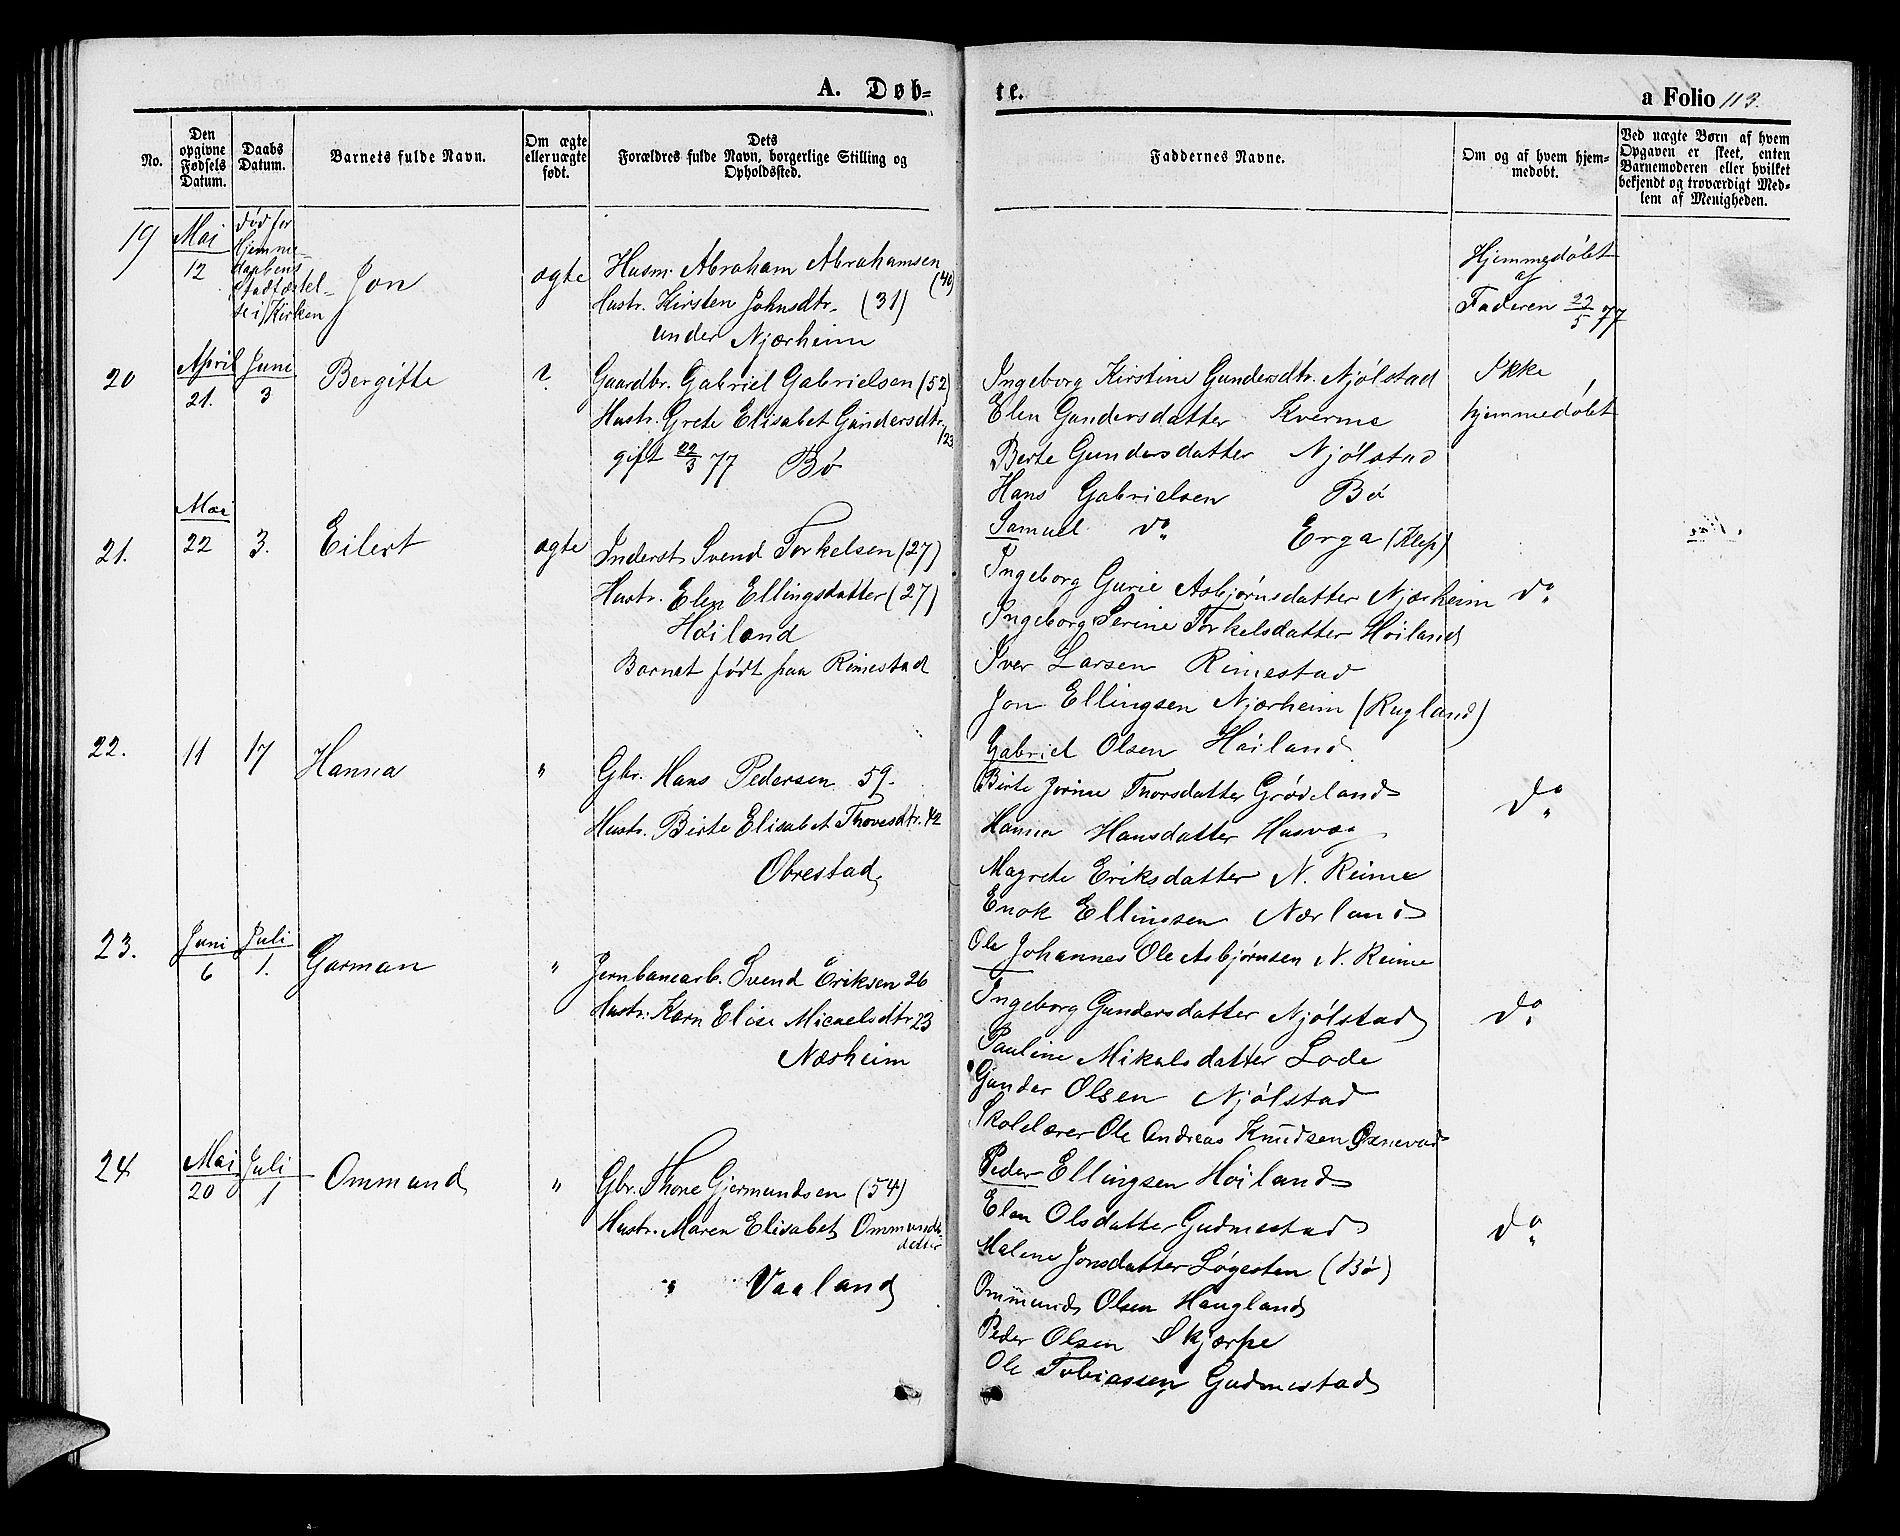 A. Døb-
te.
a Folio 113.
No.
Den opgivne Fødsels Datum.
Daabs Datum.
Barnets fulde Navn.
Om ægte eller uægte født.
Dets Forældres fulde Navn, borgerlige Stilling og Opholdssted.
Faddernes Navne.
Om og af hvem hjemmedøbt.
Ved uægte Børn af hvem Opgaven er skeet, enten Barnemoderen eller hvilket bekjendt og troværdigt Medlem af Menigheden.
19
Mai
12
død før
Hjemme-
daabens
Stadfæstel-
se i Kirken
Jon
ægte
Husm. Abraham Abrahamsen (40)
Hustr. Kirsten Johnsdtr. (31)
under Njærheim
Hjemmedøbt
af
Faderen 22/5 77
20
April
21.
Juni
3
Bergitte
Gaardbr. Gabriel Gabrielsen (52)
Hustr. Grete Elisabet Gundersdtr. /23
gift 22/3 77 Bø
Ingeborg Kirstine Gundersdtr. Njølstad
Elen Gundersdatter Kverme
Berte Gundersdatter Njølstad
Hans Gabrielsen Bø
Samuel do Erga (Klep)
Ikke
hjemmedøbt
21.
Mai
22
3.
Eilert
ægte
Inderst Svend Torkelsen (27)
Hustr. Elen Ellingsdatter (27)
Høiland
Barnet født paa Rimestad
Ingeborg Gurie Asbjørnsdatter Njærheim
Ingeborg Serine Torkelsdatter Høiland
Iver Larsen Rimestad
Jon Ellingsen Njærheim (Rugland)
Gabriel Olsen Høiland
do
22.
11
17
Hanna
"
Gbr. Hans Pedersen 59.
Hustr. Birte Elisabet Thoresdtr. 42
Obrestad
Birte Jorine Thorsdatter Grødeland
Hanna Hansdatter Husvæg
Magrete Eriksdatter N. Reime
Enok Ellingsen Nærland
Ole Johannes Ole Asbjørnsen N. Reime
do
23.
Juni
6
Juli
1.
Garman
"
Jernbanearb. Svend Eriksen 26
Hustr. Karn Elise Micaelsdtr 23
Næsheim
Ingeborg Gundersdatter Njølstad
Pauline Mikalsdatter Lode
Gunder Olsen Njølstad
Skolelærer Ole Andreas Knudsen Oxnevad
Peder Ellingsen Høiland
do
24
Mai
20
Juli
1
Ommund
"
Gbr. Thore Gjermundsen (54)
Hustr. Maren Elisabet Ommunds
datter
" Vaaland
Elen Olsdatter Gudmestad
Malene Jonsdatter Løgesten (Bø)
Ommund Olsen Haugland
Peder Olsen Skjærpe
Ole Tobiassen Gudmestad
do